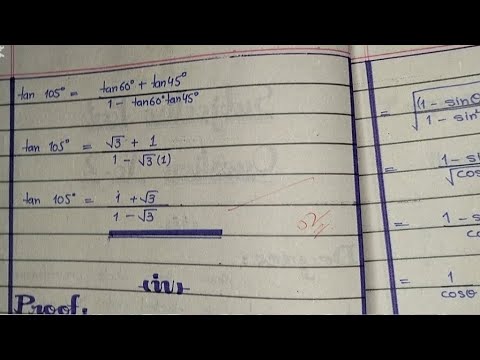 tan 105° = tan60° + tan45° / 1 - tan60° tan45°
tan 105° = √3 + 1 / 1 - √3(1)
tan 105° = 1 + √3 / 1 - √3
(iv)
Proof:
= √(1 - sinθ / 1 - sin²
= 1 - si / √cos
= 1 - s / co
= 1 / cosθ